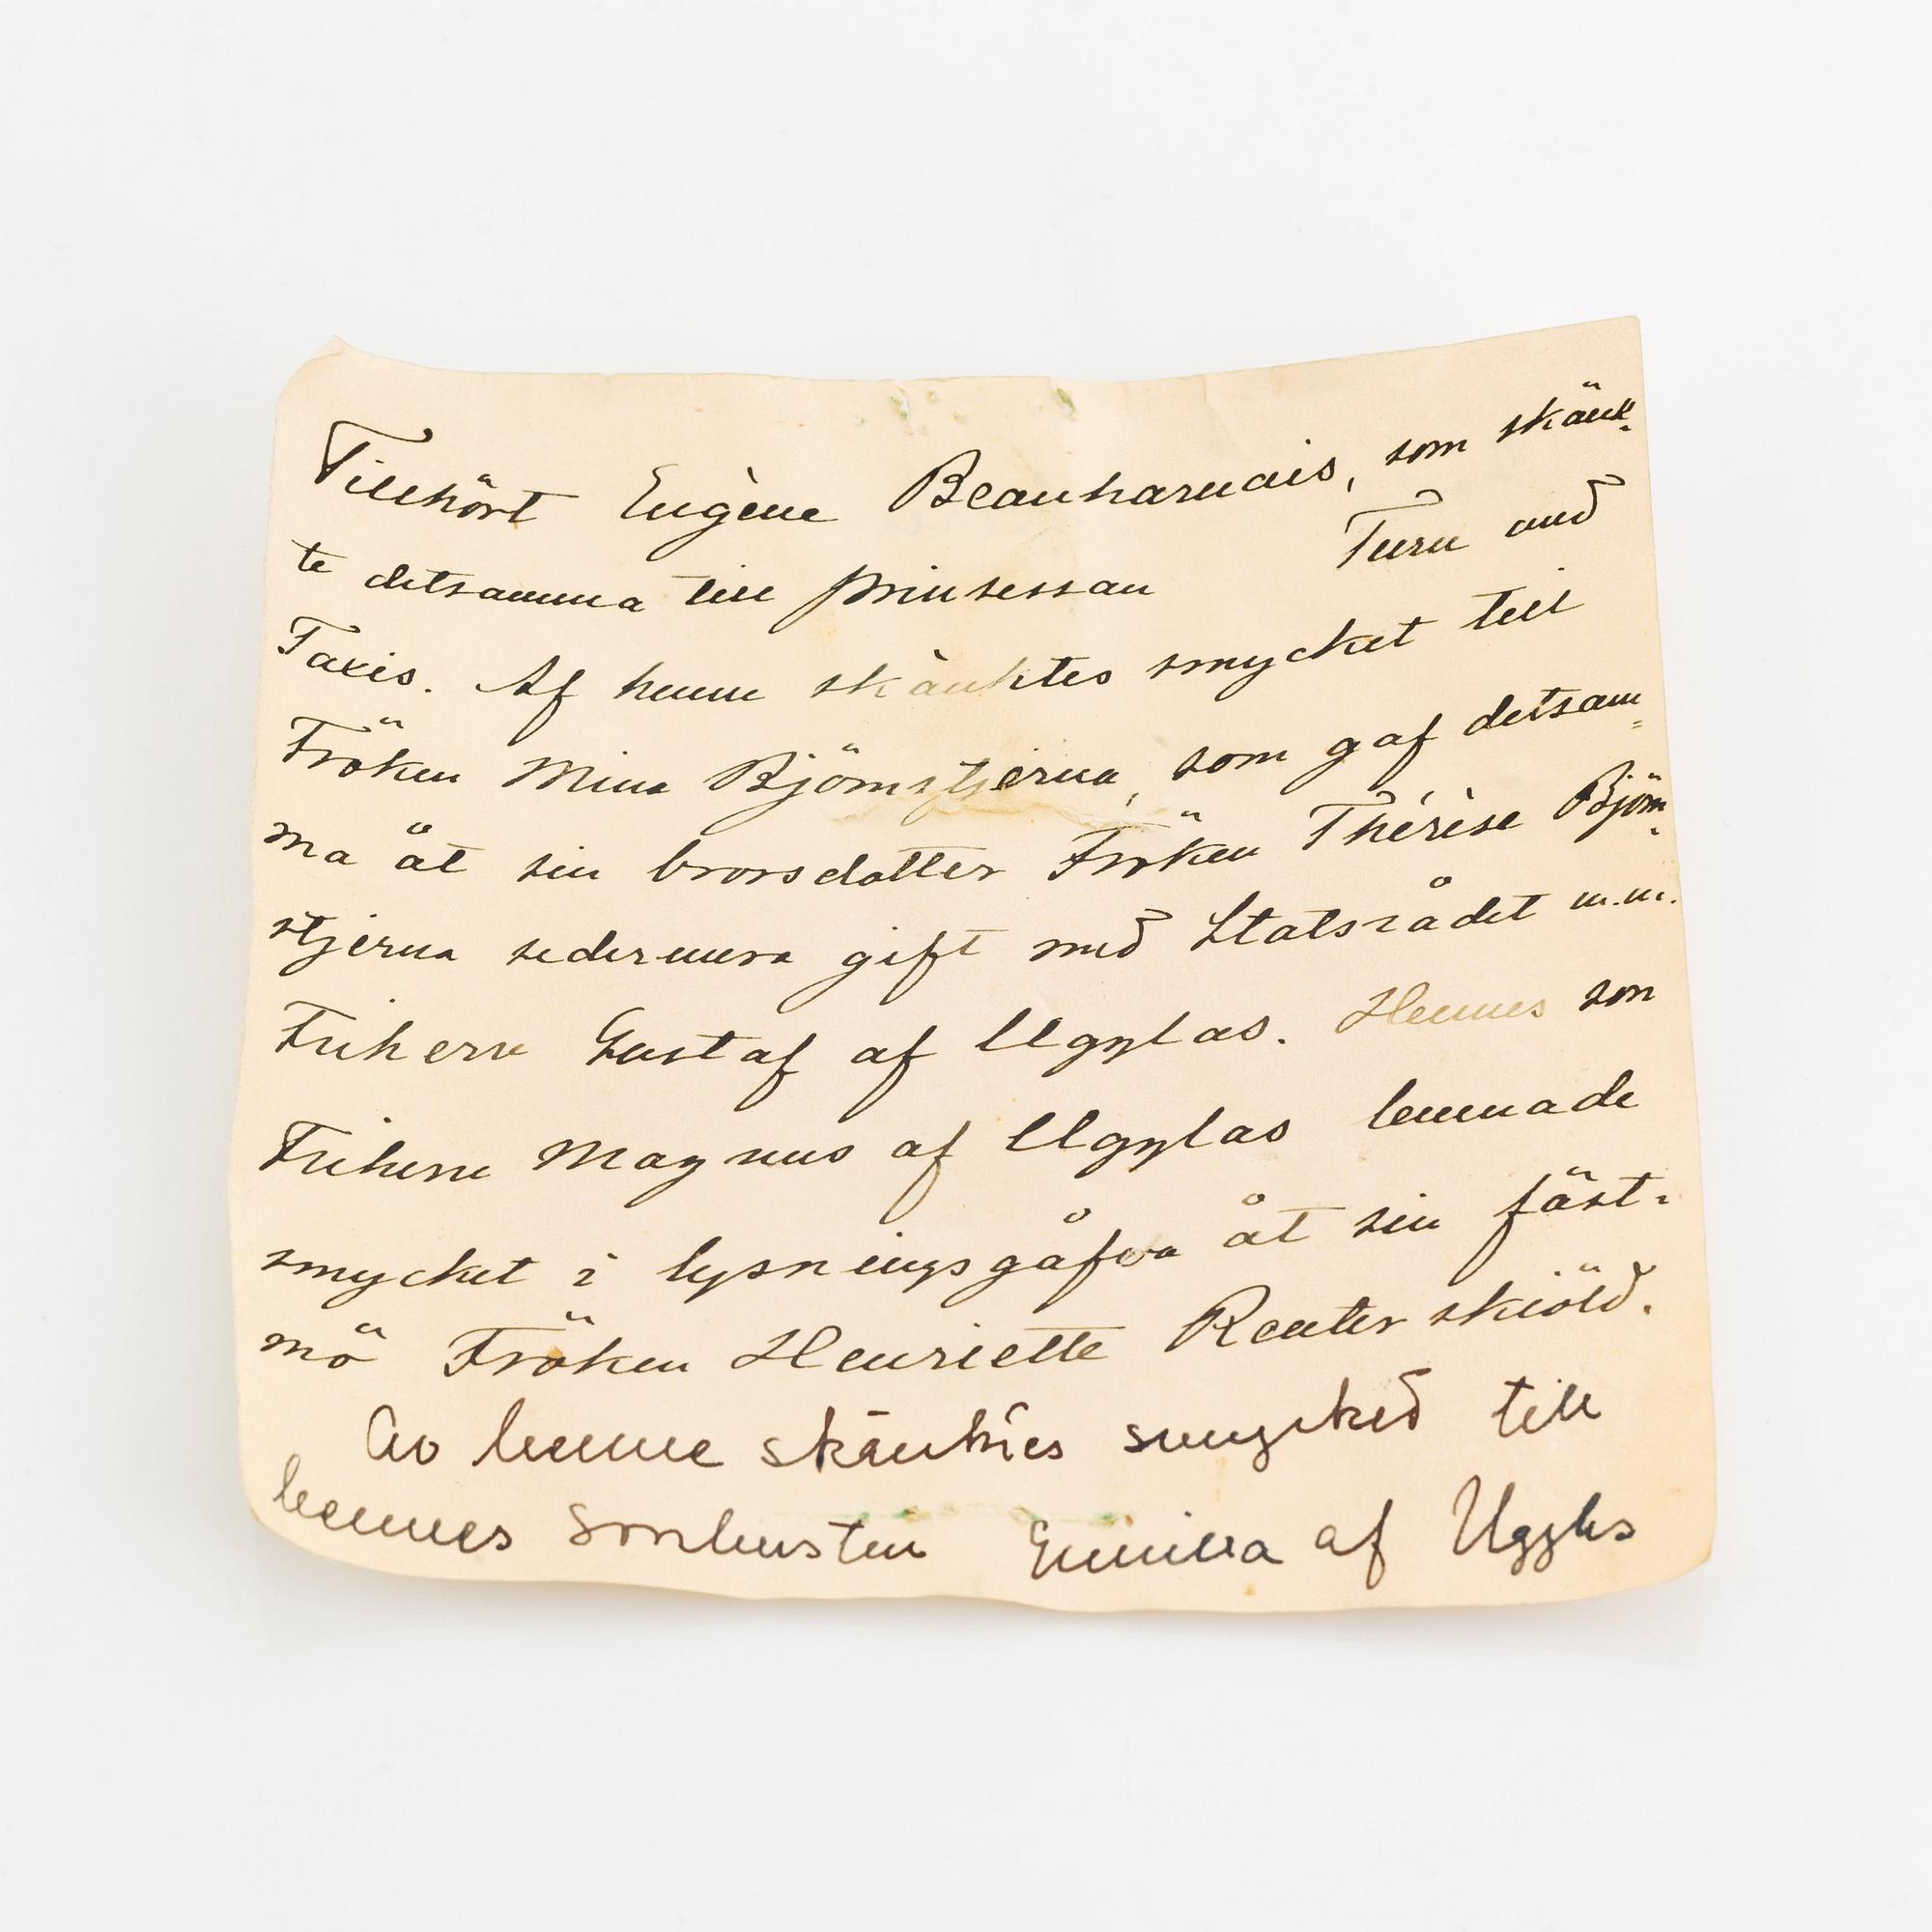 Tillhört Eugène Beauharnais, som skänk-
te detsamma till prinsessan Turn und
Taxis. Af henne skänktes smycket till
Fröken Mina Björnstjerna, som gaf detsam=
ma åt sin brorsdotter Fröken Thérèse Björn-
stjerna sedermera gift med Statsrådet m.m.
Friherre Gustaf af Ugglas. Hennes son
Friherre Magnus af Ugglas lemnade
smycket i lysningsgåfva åt sin fäst-
mö Fröken Henriette Reuterskiöld.
Av henne skänktes smycked till
hennes sonhustru Gunilla af Ugglas